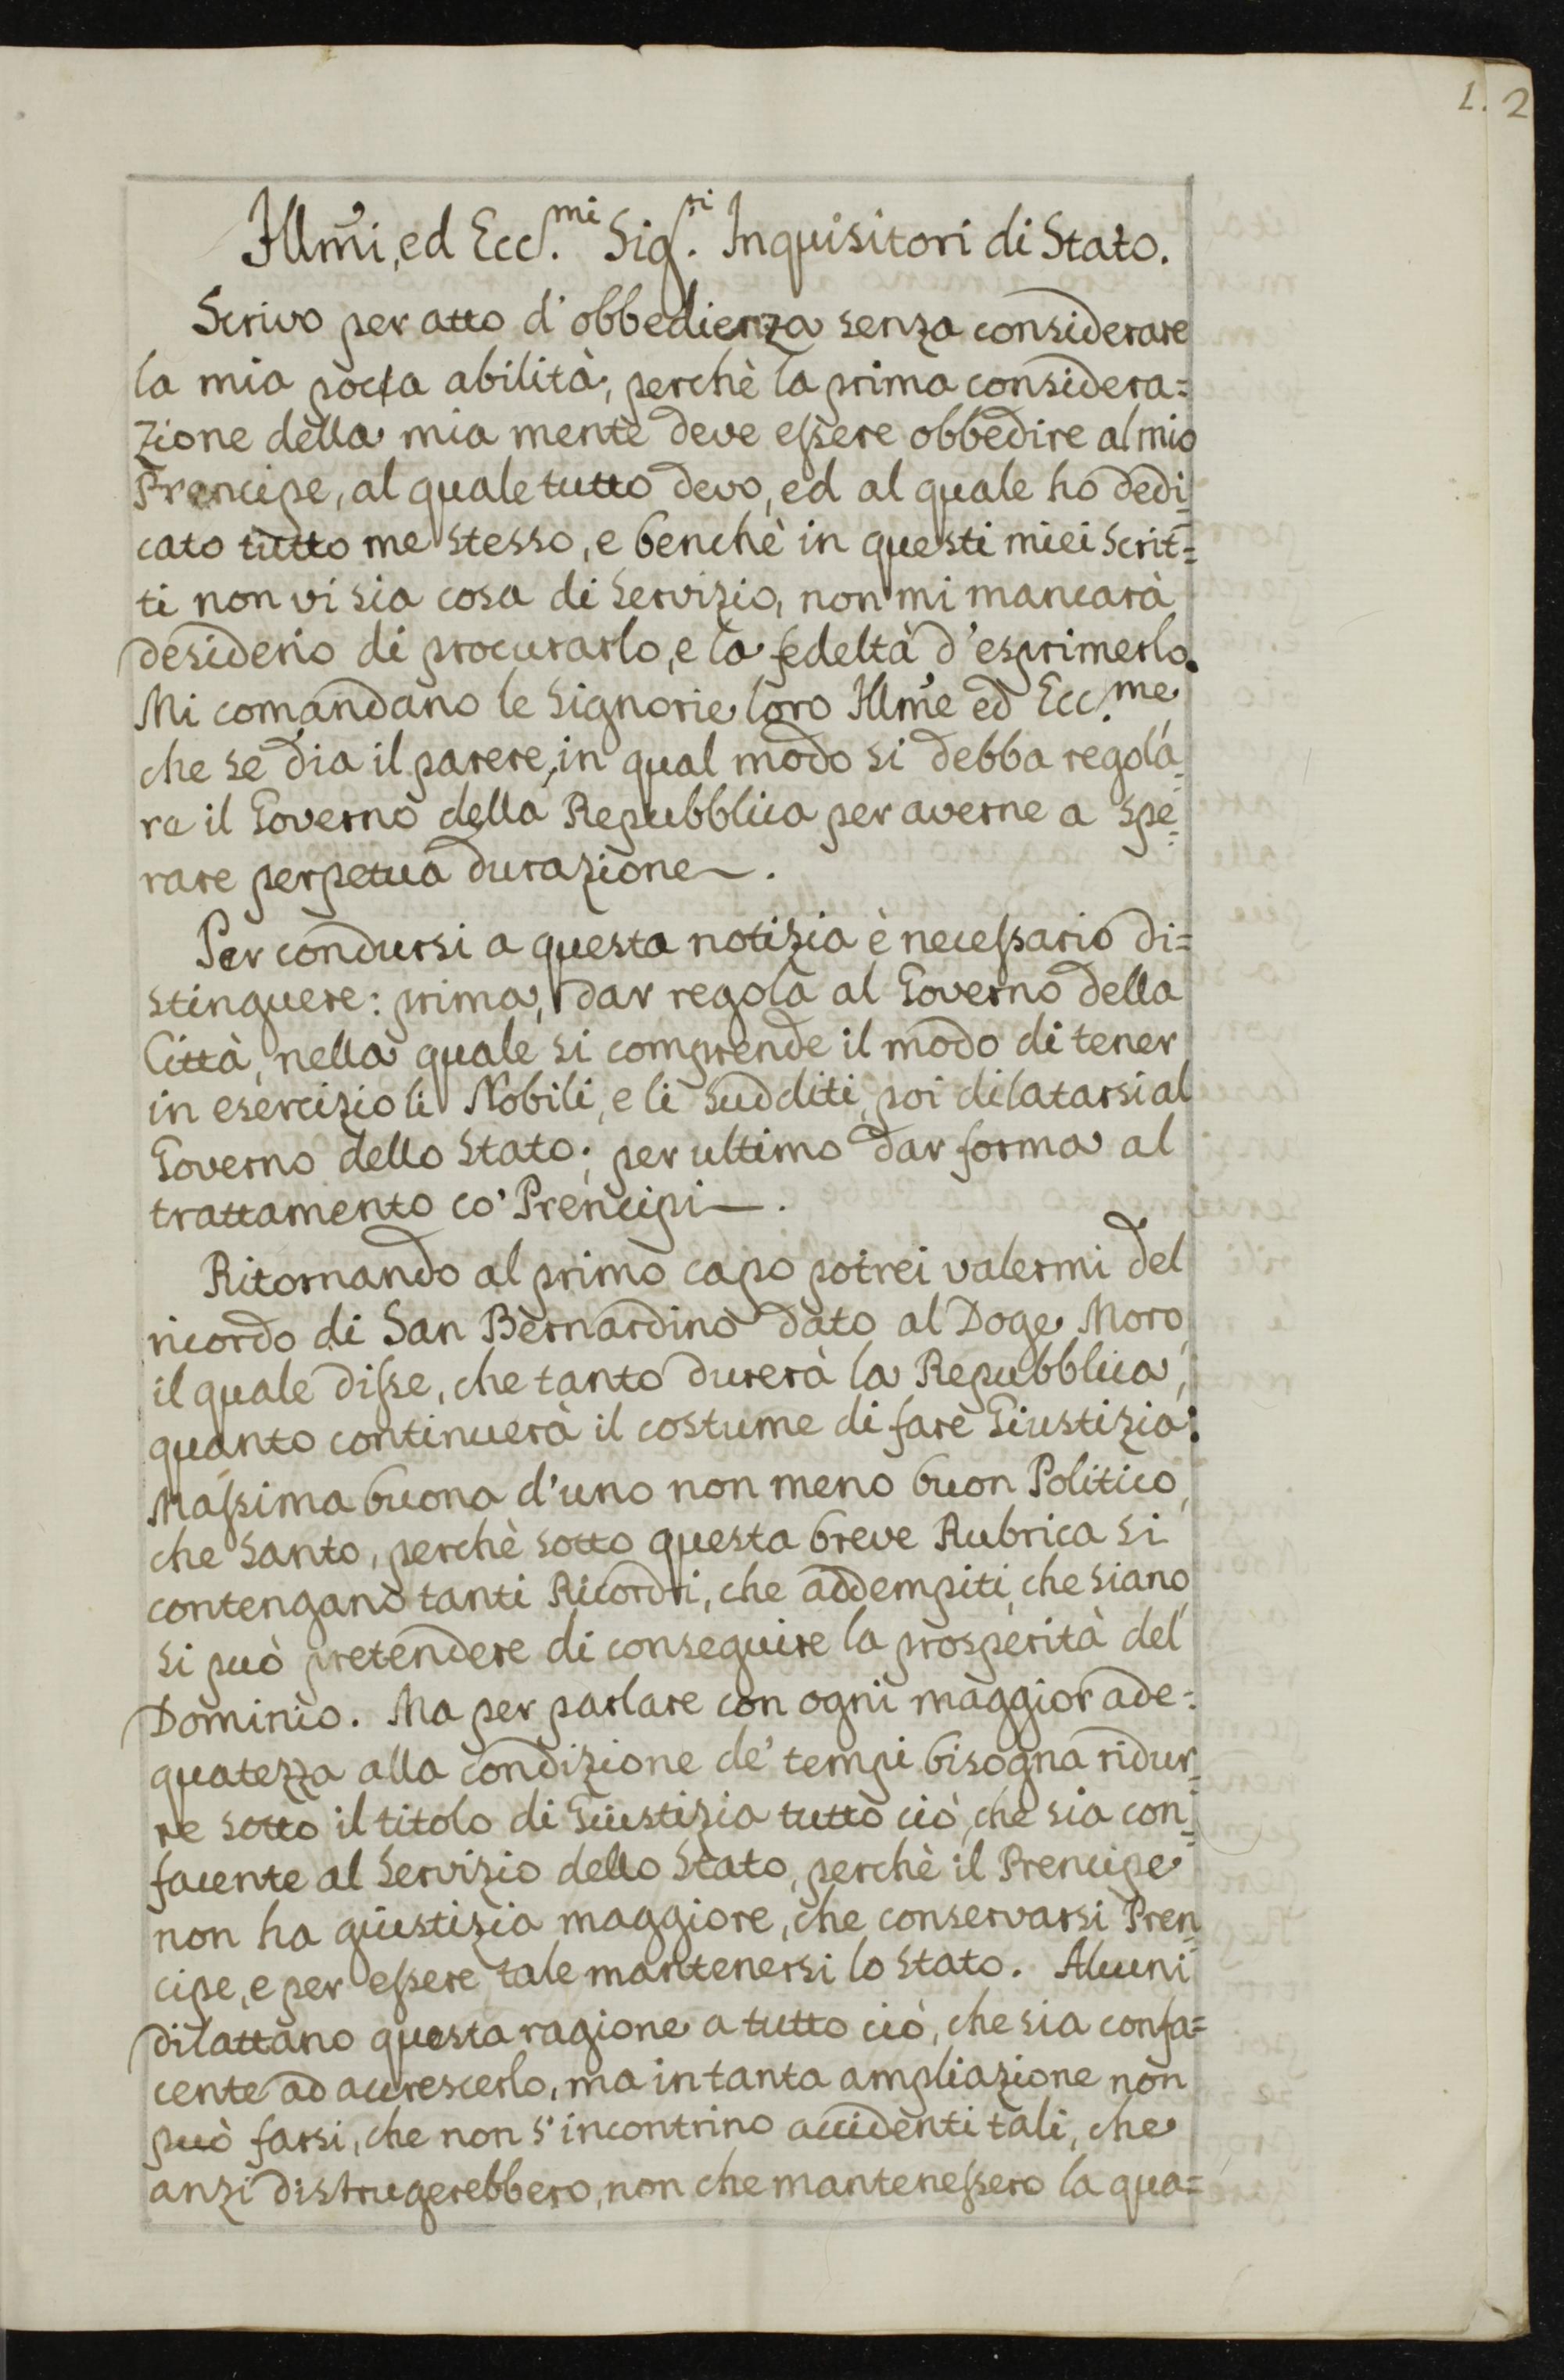 1. 2
Illmi, ed Ecc.mi Sig.ri Inquisitori di Stato.
Scrivo per atto d'obbedienza senza considerare
la mia pocca abilità, perchè la prima considera=
zione della mia mente deve essere obbedire al mio
Prencipe, al quale tutto devo, ed al quale ho dedi=
cato tutto me stesso, e benchè in questi miei Scrit=
ti non vi sia cosa di Servizio, non mi mancarà
desiderio di procurarlo, e la fedeltà d'esprimerlo.
Mi comandano le Signorie loro Illme ed Ecc.me
che se dia il parere, in qual modo si debba regola=
re il Governo della Repubblica per averne a spe=
rare perpetua durazione.
Per condursi a questa notizia è necessario di=
stinguere: prima, dar regola al Governo della
Città, nella quale si comprende il modo di tener
in esercizio li Nobili, e li Sudditi, poi dilatarsi al
Governo dello Stato; per ultimo dar forma al
trattamento co' Prencipi.
Ritornando al primo capo potrei valermi del
ricordo di San Bernardino dato al Doge Moro,
il quale disse, che tanto durerà la Repubblica,
quanto continuerà il costume di fare Giustizia:
Massima buona d'uno non meno buon Politico,
che Santo, perchè sotto questa breve Rubrica si
contengano tanti Ricordi, che addempiti, che siano,
si può pretendere di conseguire la prosperità del
Dominio. Ma per parlare con ogni maggior ade=
quatezza alla condizione de' tempi bisogna ridur=
re sotto il titolo di Giustizia tutto ciò, che sia con=
facente al Servizio dello Stato, perchè il Prencipe
non ha giustizia maggiore, che conservarsi Pren=
cipe, e per essere tale mantenersi lo Stato. Alcuni
dilattano questa ragione a tutto ciò, che sia confa=
cente ad accrescerlo, ma in tanta ampliazione non
può farsi, che non s'incontrino accidenti tali, che
anzi distrugerebbero, non che mantenessero la qua=